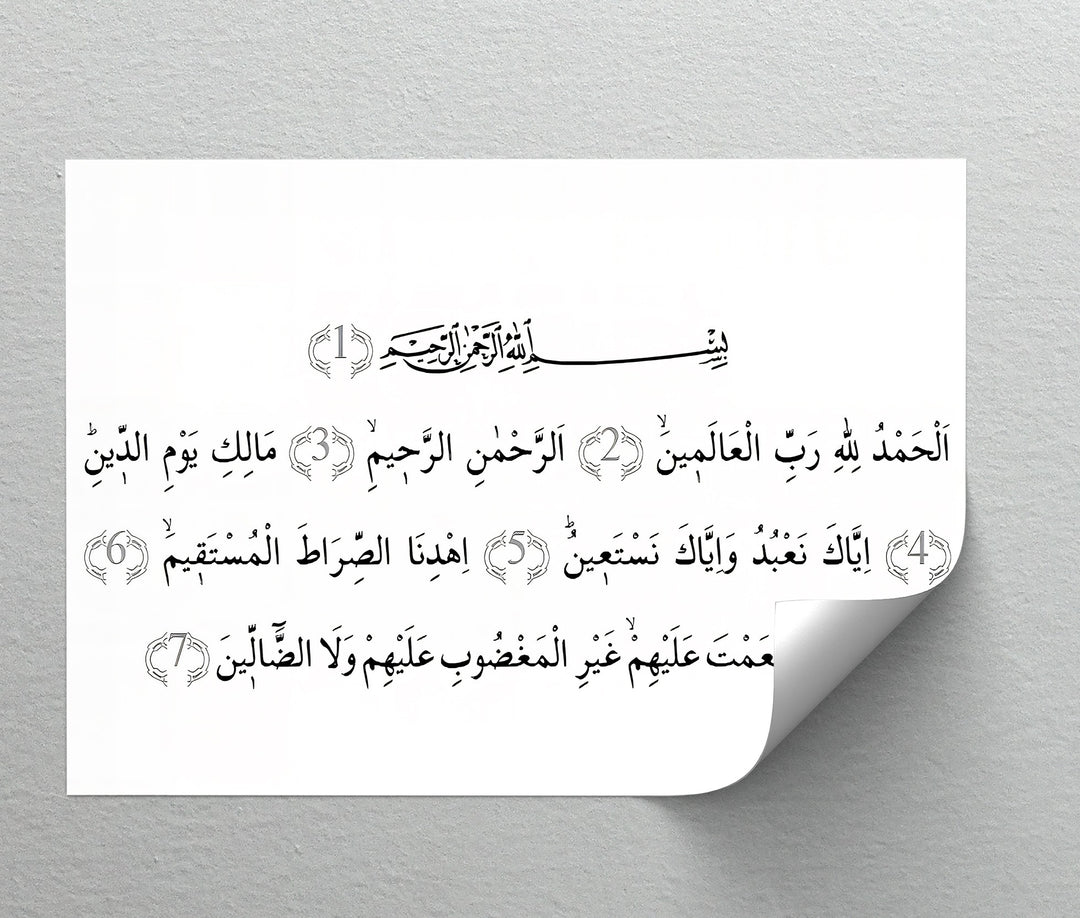 بِسْمِ ٱللّٰهِ ٱلرَّحْمٰنِ ٱلرَّحِيمِ ﴿1﴾
اَلْحَمْدُ لِلّٰهِ رَبِّ الْعَالَمٖينَۙ ﴿2﴾ اَلرَّحْمٰنِ الرَّحٖيمِۙ ﴿3﴾ مَالِكِ يَوْمِ الدّٖينِؕ
﴿4﴾ اِيَّاكَ نَعْبُدُ وَاِيَّاكَ نَسْتَعٖينُؕ ﴿5﴾ اِهْدِنَا الصِّرَاطَ الْمُسْتَقٖيمَۙ ﴿6﴾
عَمْتَ عَلَيْهِمْۙ غَيْرِ الْمَغْضُوبِ عَلَيْهِمْ وَلَا الضَّٓالّٖينَ ﴿7﴾